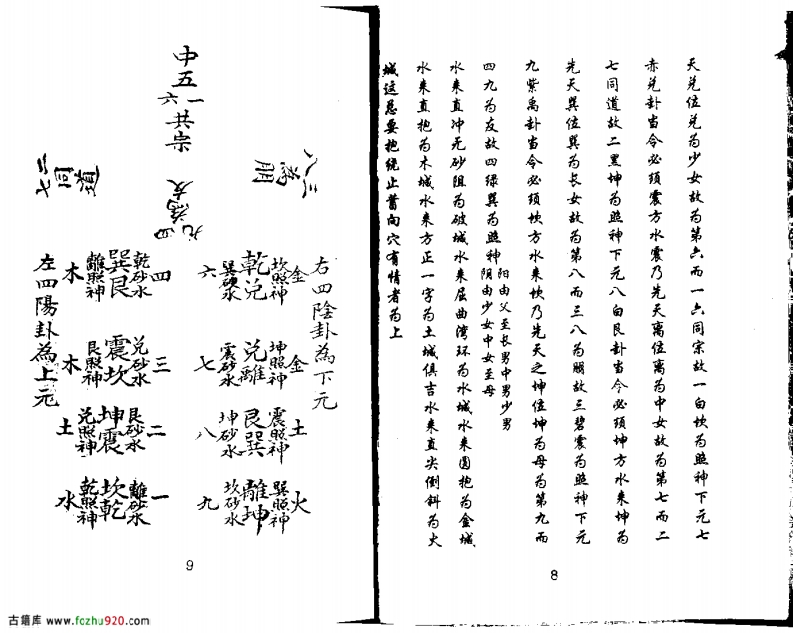 天兑位兑为少女故为第六而一六同宗故一白坎为照神下元七
赤兑卦当令必须震方水震乃先天离位离为中女故为第七而二
七同道故二黑坤为照神下元八白艮卦当令必须坤方水来坤为
先天巽位巽为长女故为第八而三八为朋故三碧震为照神下元
九紫离卦当令必须坎方水来坎乃先天之坤位坤为母为第九而
四九为友故四绿巽为照神
阳由父至长男中男少男
阴由少女中女至母
水来直冲无砂阻为破城水来屈曲湾环为水城水来圆抱为金城
水来直抱为木城水来方正一字为土城俱吉水来直尖倒斜为火
城这总要抱绕止蓄向穴有情者为上
8
中五
一六共宗
三八為朋
四九為友
二七同道
右四陰卦為下元
金
坎照神
乾兑
巽砂水
六
金
坤照神
兑離
震砂水
七
土
震照神
艮巽
坤砂水
八
火
巽照神
離坤
坎砂水
九
四
乾砂水
巽艮
離照神
木
三
兑砂水
震坎
艮照神
木
二
艮砂水
坤震
兑照神
土
一
離砂水
坎乾
乾照神
水
左四陽卦為上元
9
古籍库 www.fczhu920.com